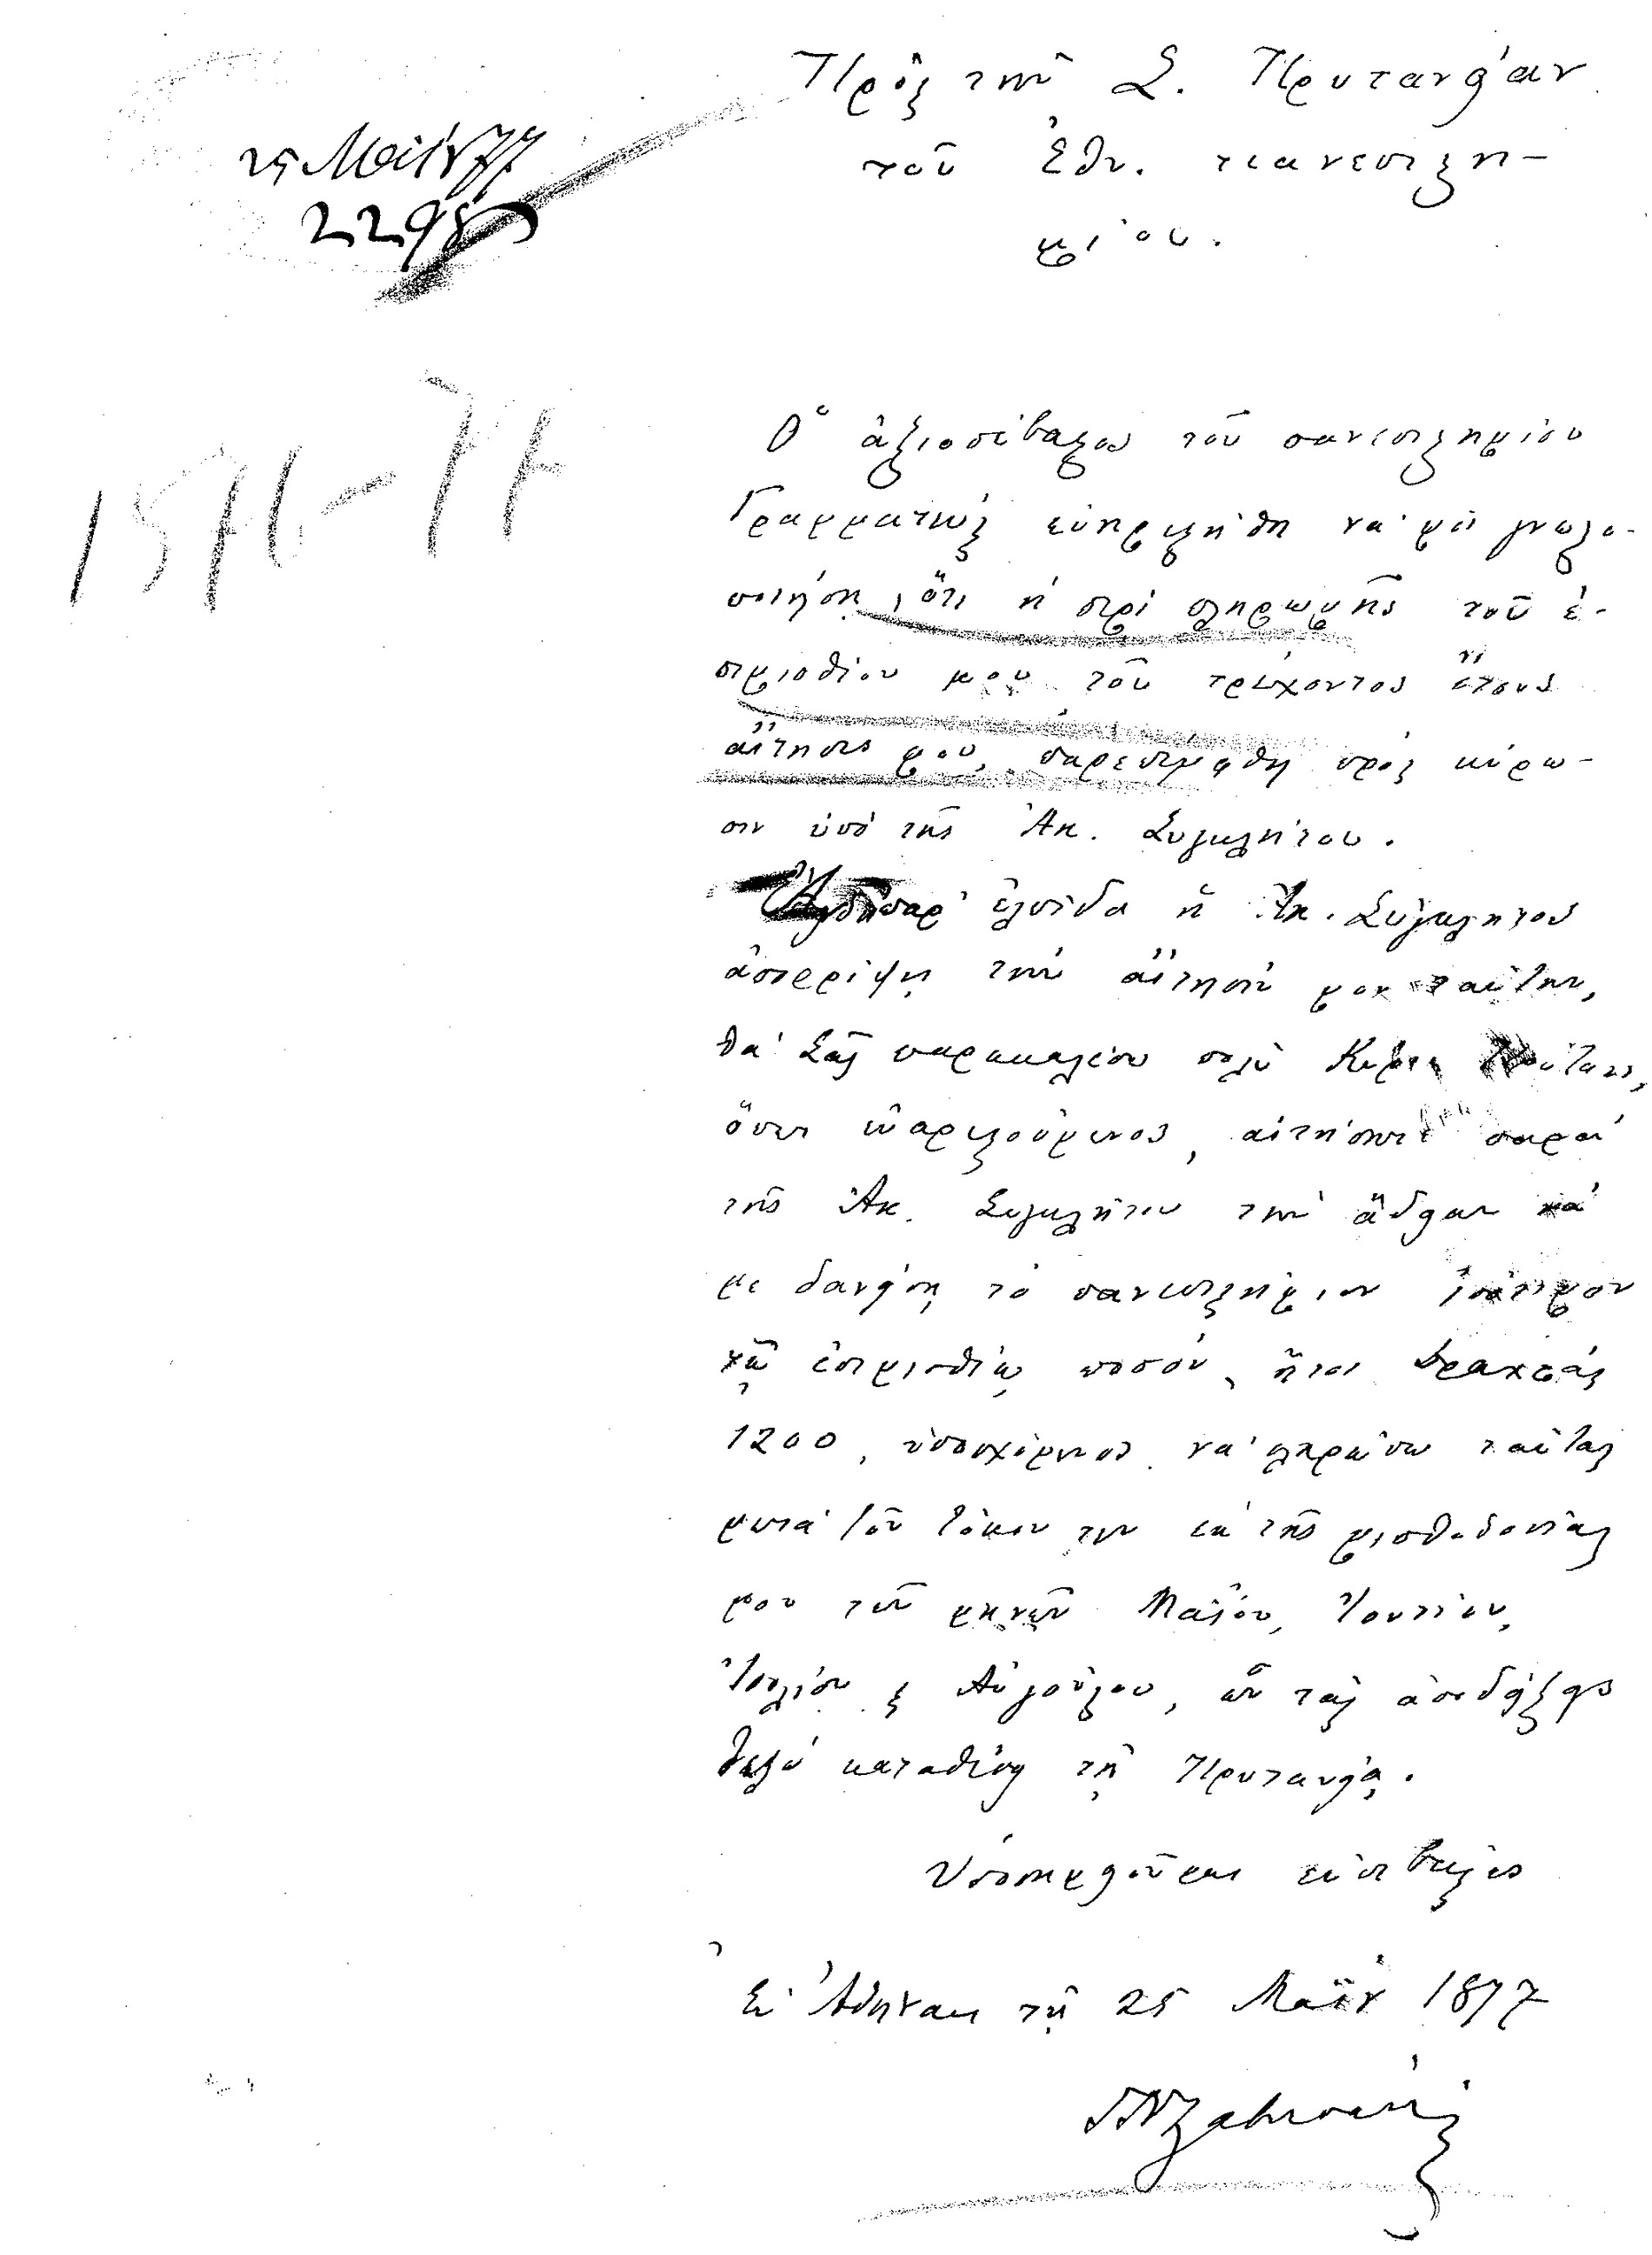 25 Μαΐου 77
2298
1876-77
Πρὸς τὴν Σ. Πρυτανείαν
τοῦ Ἐθν. πανεπιστη-
μίου.
Ὁ ἀξιοσέβαστος τοῦ πανεπιστημίου
Γραμματεὺς εὐηρεστήθη νὰ μοὶ γνωστο-
ποιήσῃ, ὅτι ἡ περὶ πληρωμῆς τοῦ ἐ-
πιμισθίου μου τοῦ τρέχοντος ἔτους
αἴτησίς μου, παρεπέμφθη πρὸς κύρω-
σιν ὑπὸ τῆς Ἀκ. Συγκλήτου.
παρ' ἐλπίδα ἡ Ἀκ. Σύγκλητος
ἀπορρίψῃ τὴν αἴτησίν μου ταύτην,
θὰ Σᾶς παρακαλέσω πολὺ Κύριε Πρύτανι,
ὅπως εὐαρεστούμενος, αἰτήσητε παρὰ
τῆς Ἀκ. Συγκλήτου τὴν ἄδειαν νὰ
με δανείσῃ τὸ πανεπιστήμιον ἰσότιμον
τῷ ἐπιμισθίῳ ποσόν, ἤτοι δραχμὰς
1200, ὑποσχόμενος νὰ πληρώσω ταύτας
μετὰ τῶν τόκων των ἐκ τῆς μισθοδοσίας
μου τῶν μηνῶν Μαΐου, Ἰουνίου,
Ἰουλίου & Αὐγούστου, ὧν τὰς ἀποδείξεις
θέλω καταθέσει τῇ Πρυτανείᾳ.
Ὑποσημειοῦμαι εὐσεβάστως
Ἐν Ἀθήναις τῇ 25 Μαΐου 1877